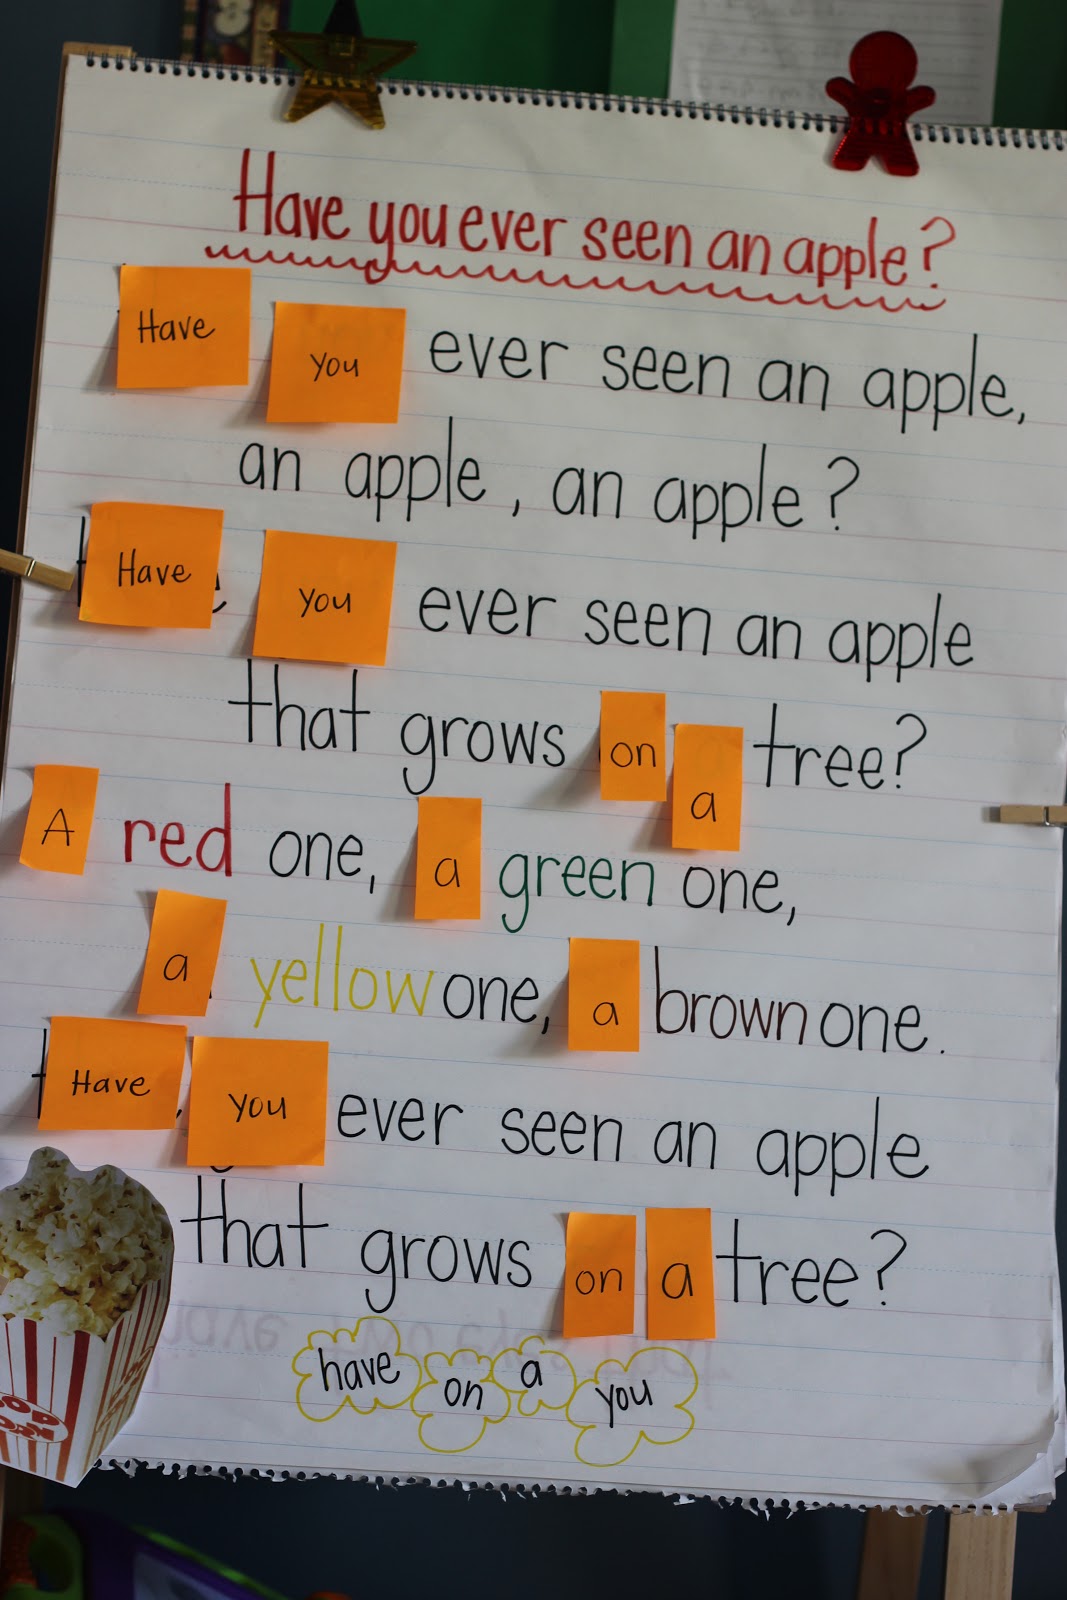 Have you ever seen an apple?
Have you ever seen an apple,
an apple, an apple?
Have you ever seen an apple
that grows on a tree?
A red one, a green one,
a yellow one, a brown one.
Have you ever seen an apple
that grows on a tree?
have on a you